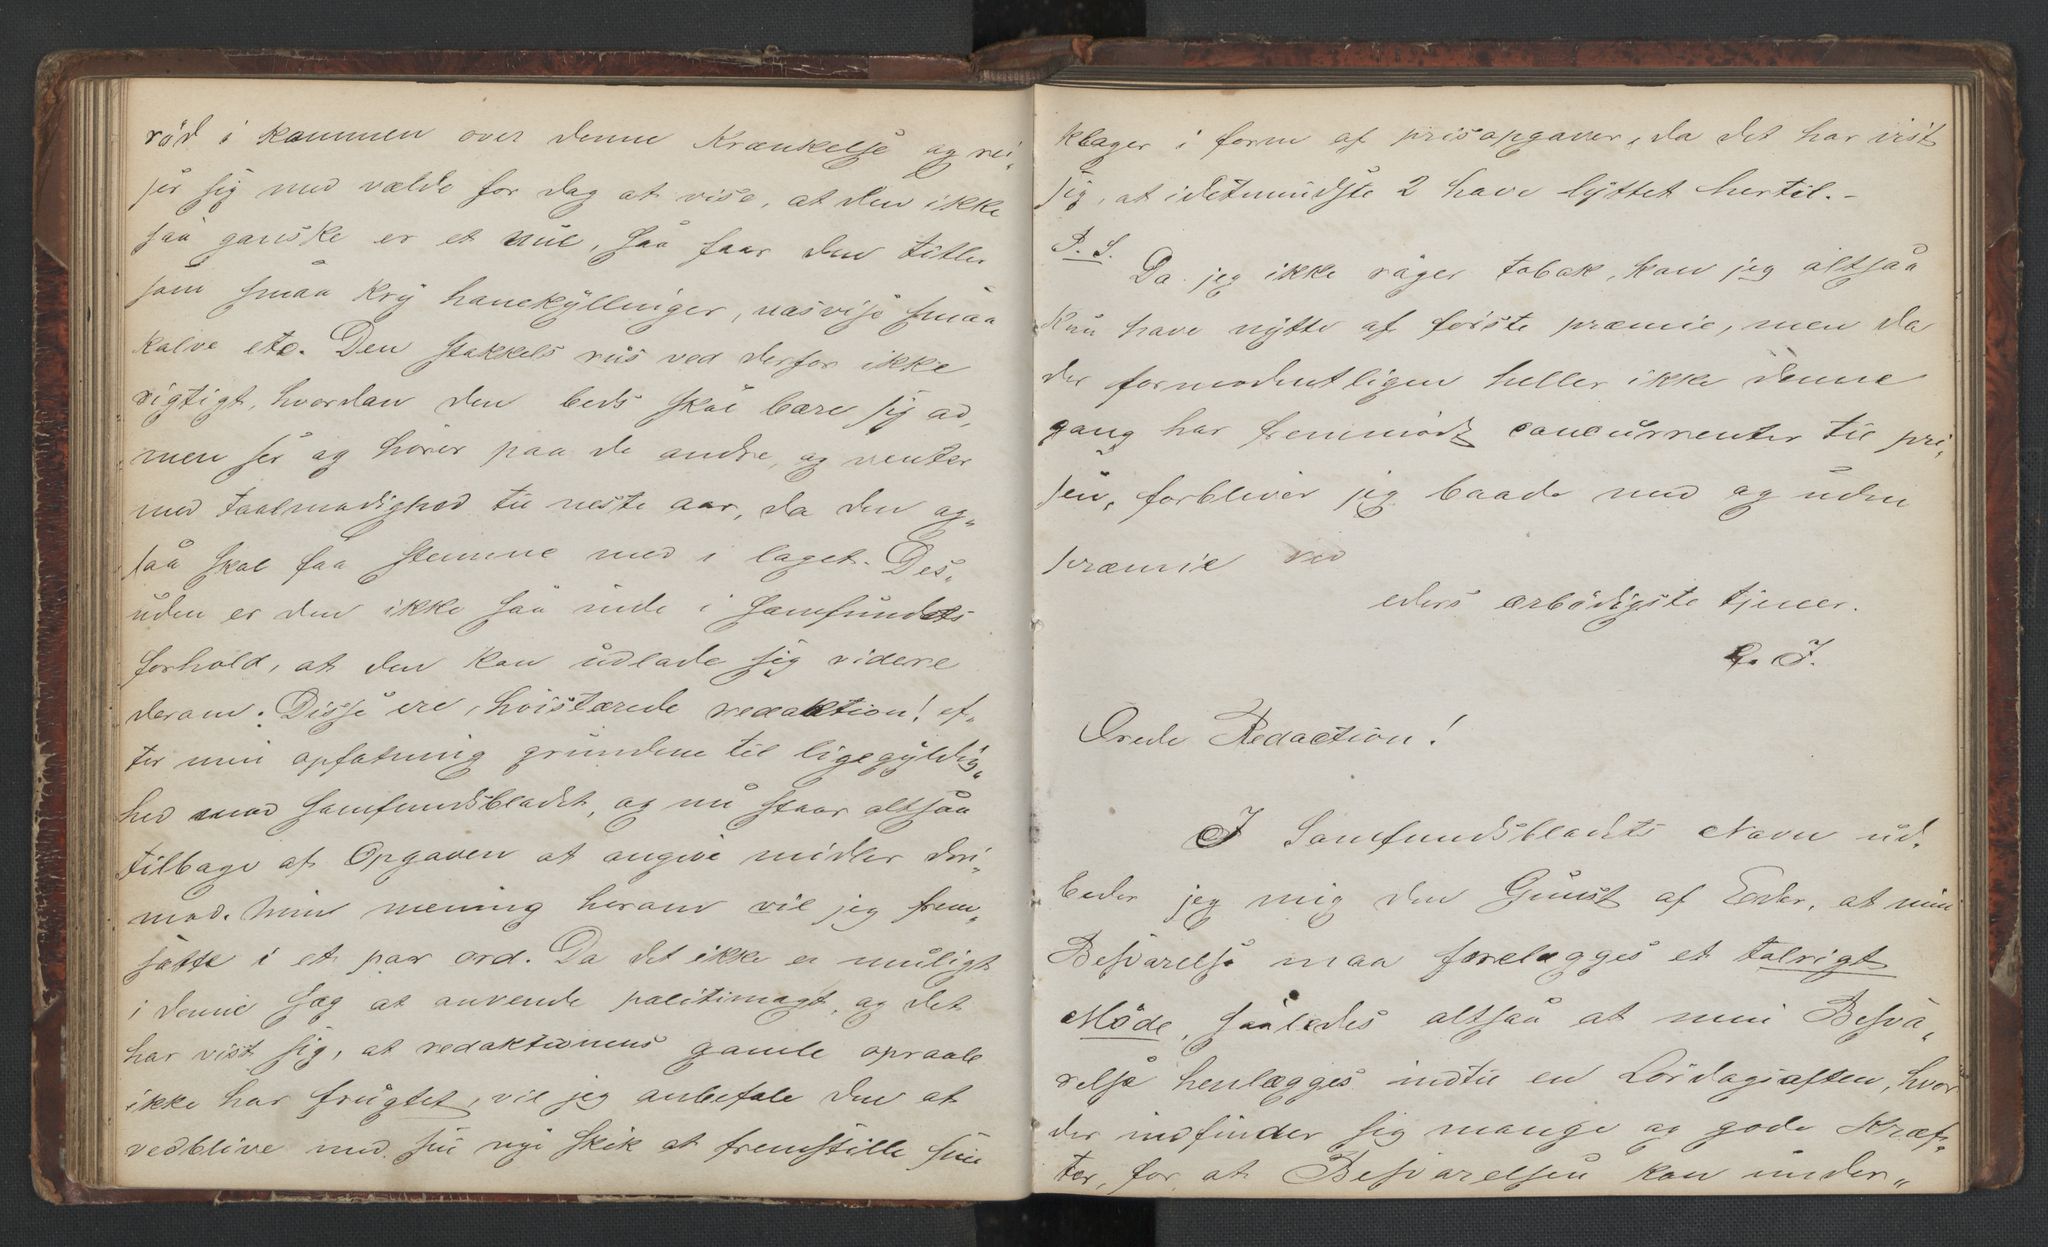 röd i kammen over denne Krænkelse og rei-
ser sig med vælde for dag at vise, at den ikke
saa ganske er et nul, saa faar den titler
som smaa kry hanekyllinger, næsvise smaa
kalve etc. Den stakkels rus ved derfor ikke
rigtigt, hvordan den beds skal bære sig ad,
men ser og hører paa de andre, og venter
med taalmodighed til neste aar, da den og-
saa skal faa stemme med i laget. Des-
uden er den ikke saa inde i Samfundets
forhold, at den kan udlade sig videre
derom. Disse ere, høistærede redaktion! ef-
ter min opfatning grundene til ligegyldig-
hed mod samfundsbladet, og nu staar altsaa
tilbage af Opgaven at angive midler deri-
mod. Min mening herom vil jeg frem-
sætte i et par ord. Da det ikke er muligt
i denne sag at anvende politimagt, og det
har vist sig, at redaktionens gamle opraab
ikke har frugtet, vil jeg anbefale den at
vedblive med sin nye skik at fremstille sine
klager i form af prisopgaver, da det har vist
sig, at idetmindste 2 have lyttet hertil.-
P. S.
Da jeg ikke röger tobak, kan jeg altsaa
kun have nytte af förste præmie, men da
der formodentligen heller ikke denne
gang har fremmödt concurrenter til pri-
sen, forbliver jeg baade med og uden
præmie ved
eders ærbödigste tjener.
J.
Ærede Redaction!
I Samfundsbladets Navn ud-
beder jeg mig den Gunst af Eder, at min
Besvarelse maa forelægges et talrigt
Møde, saaledes altsaa at min Besva-
relse henlægges indtil en Lördagsaften, hvor
der indfinder sig mange og gode Kræf-
ter, for at Besvarelsen kan under-